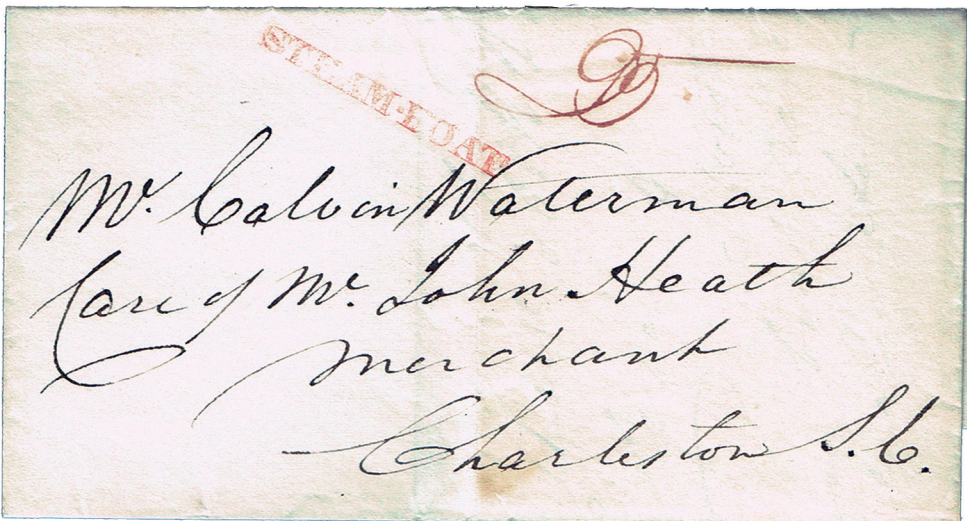 STEAM-BOAT
Mr. Calvin Waterman
Care of Mr. John Heath
Merchant
Charleston S.C.